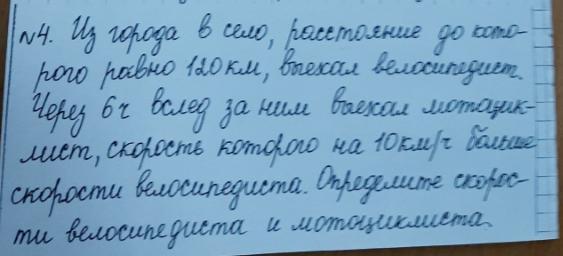 №4. Из города в село, расстояние до кото-
рого равно 120 км, выехал велосипедист.
Через 6ч вслед за ним выехал мотоцик-
лист, скорость которого на 10 км/ч больше
скорости велосипедиста. Определите скорос-
ти велосипедиста и мотоциклиста.